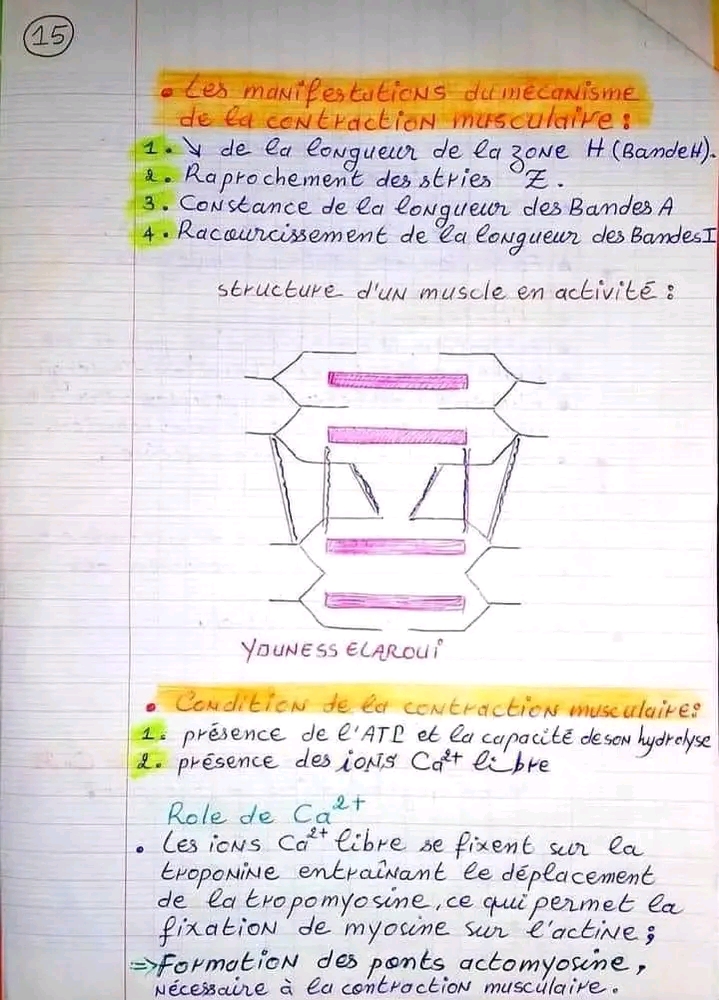 15
• Les manifestations du mécanisme
de la contraction musculaire :
1. ↘ de la longueur de la zone H (Bande H).
2. Raprochement des stries Z.
3. Constance de la longueur des Bandes A
4. Racourcissement de la longueur des Bandes I
structure d'un muscle en activité :
YOUNESS ELAROUI
• Condition de la contraction musculaire:
1. présence de l'ATP et la capacité de son hydrolyse
2. présence des ions Ca²⁺ libre
Role de Ca²⁺
• Les ions Ca²⁺ libre se fixent sur la
troponine entraînant le déplacement
de la tropomyosine, ce qui permet la
fixation de myosine sur l'actine ;
⇒ Formation des ponts actomyosine,
nécessaire à la contraction musculaire.